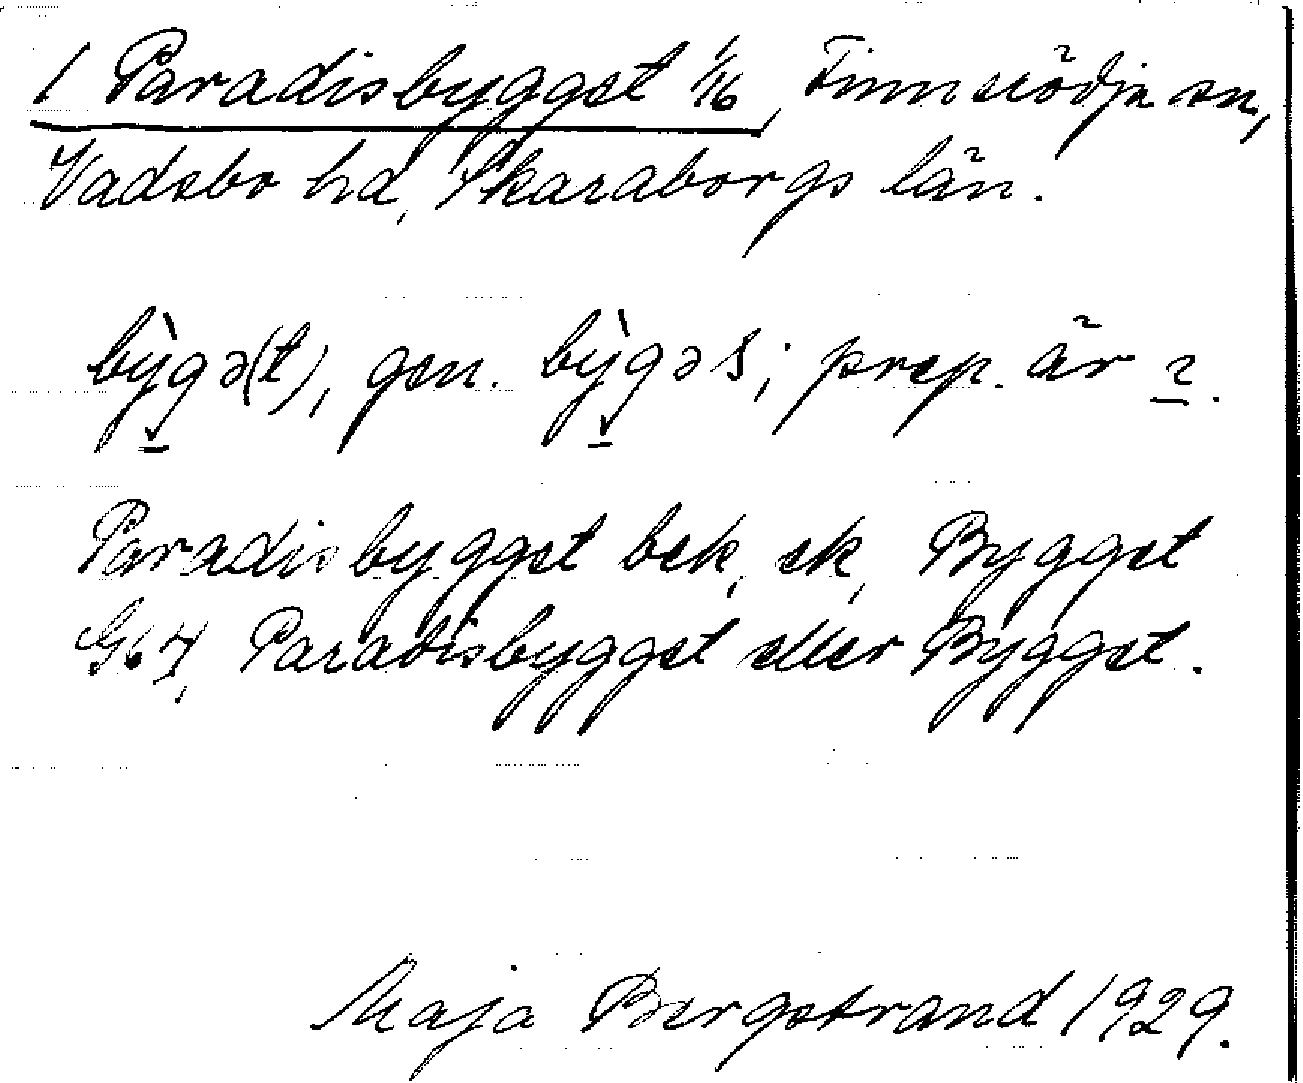 1 Paradisbygget 1/16, Finnerödja sn,
Vadsbo hd, Skaraborgs län.
bỳgə(t), gen. bỳgəs; prep. är
Paradisbygget bek, ek, Bygget
G67, Paradisbygget eller Bygget.
Maja Bergstrand 1929.